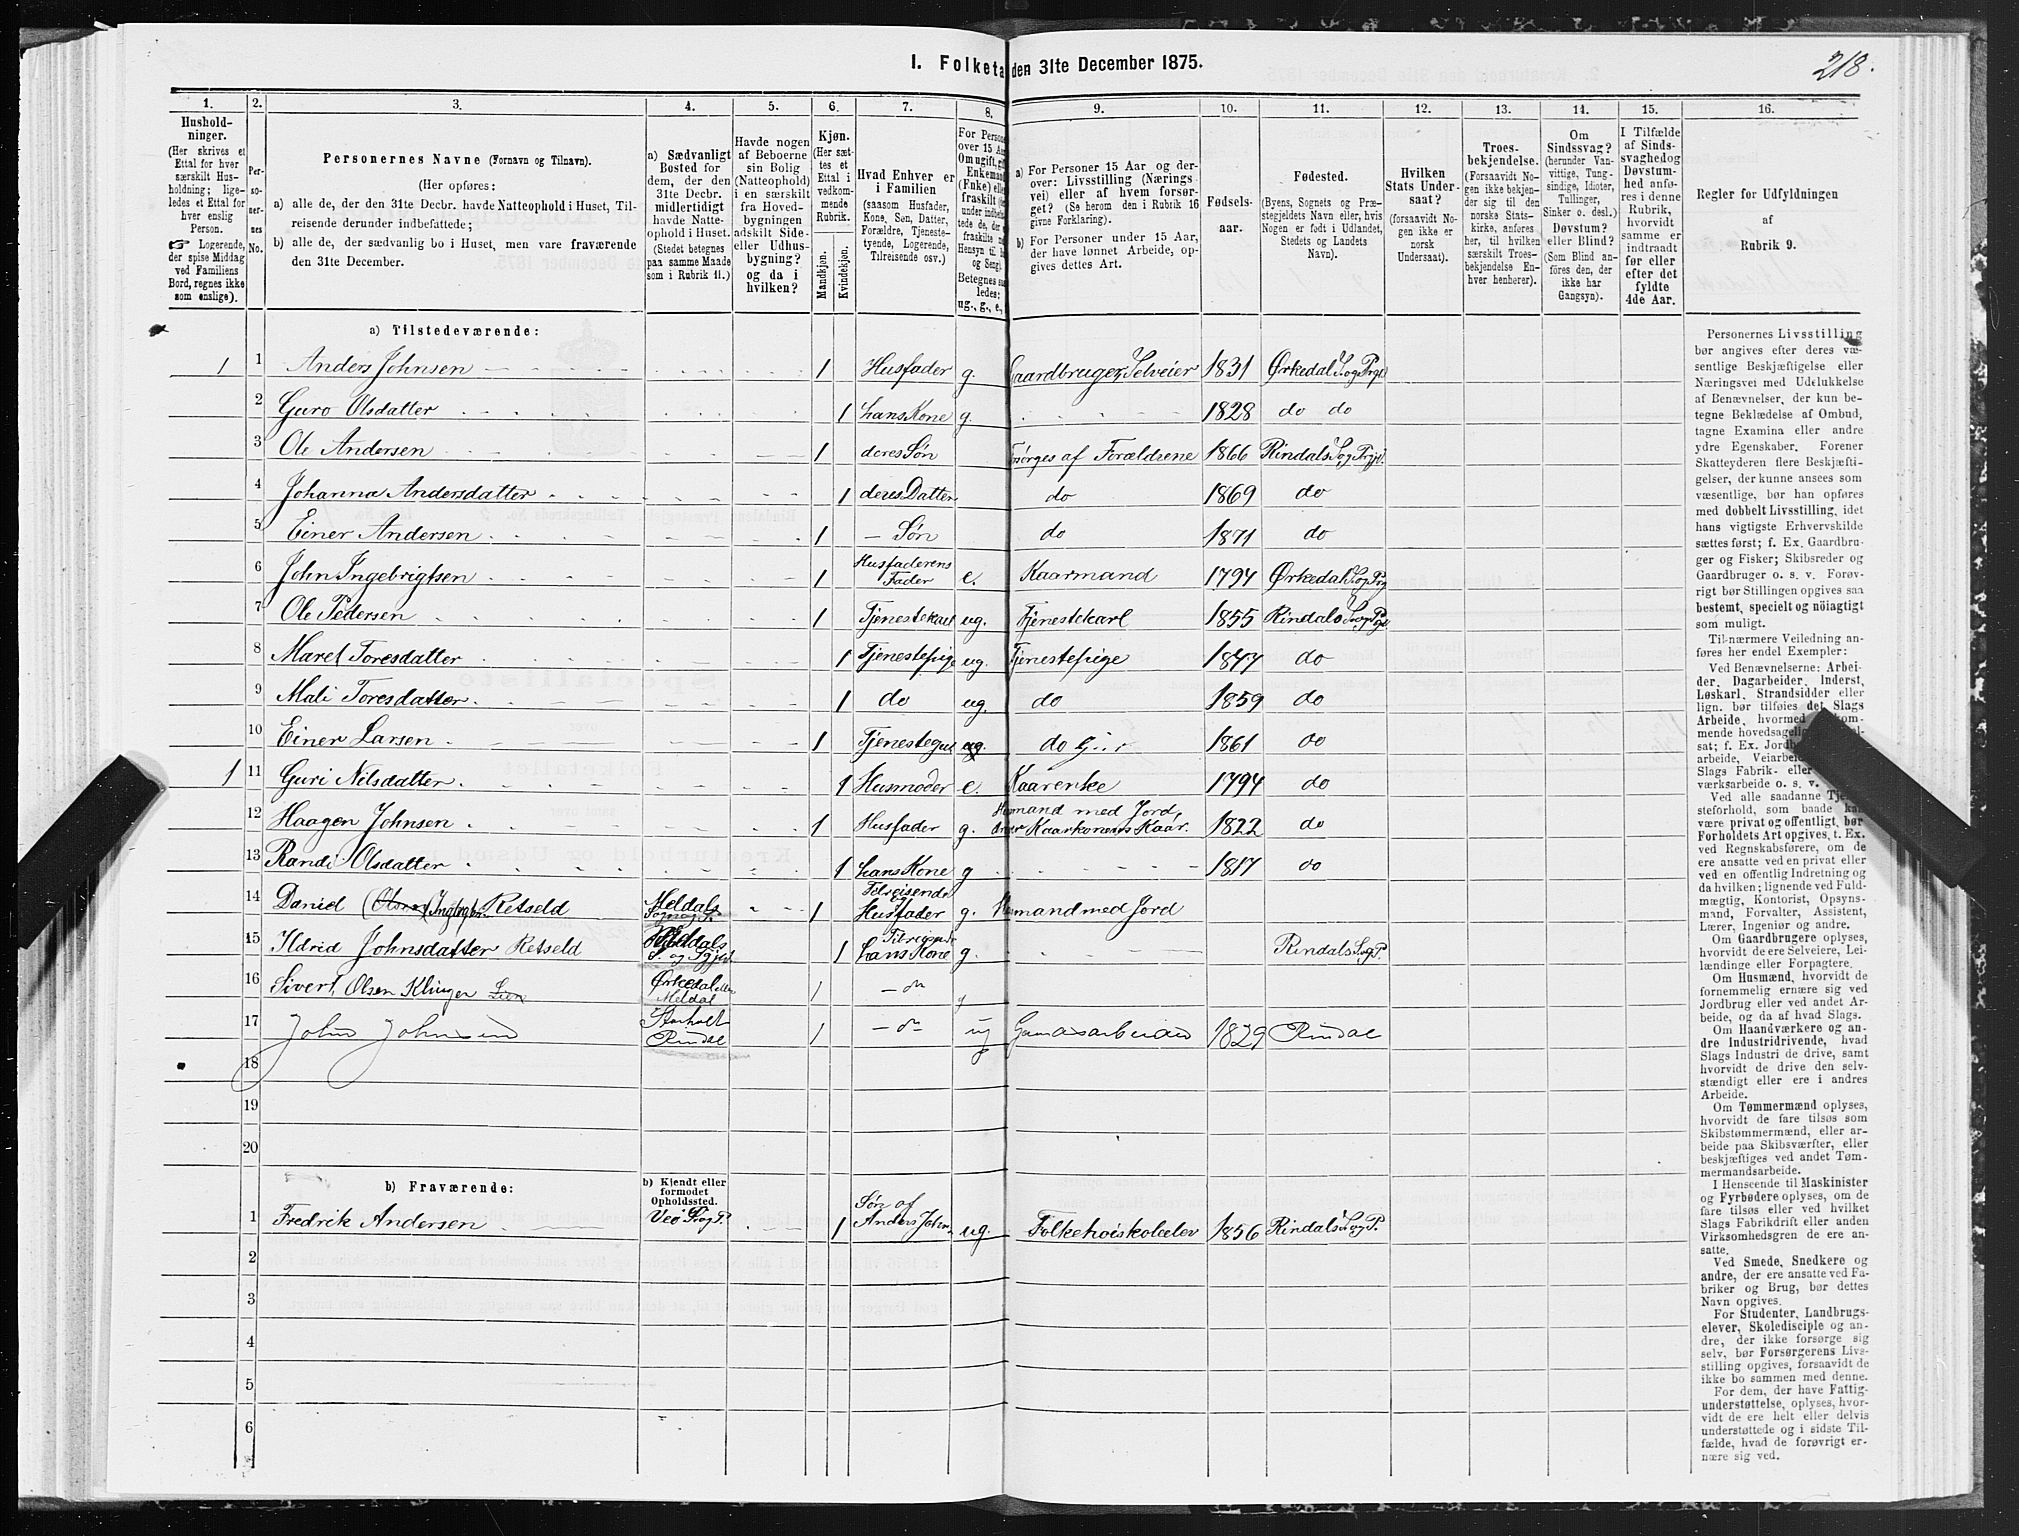 218.
I. Folketa den 31te December 1875.
1. 2. 3. 4. 5. 6. 7. 8. 9. 10. 11. 12. 13. 14. 15. 16.
Hushold-
ninger.
(Her skrives et
Ettal for hver
særskilt Hus-
holdning; lige-
ledes et Ettal for
hver enslig
Person.
☞ Logerende,
der spise Middag
ved Familiens
Bord, regnes ikke
som enslige).
Per-
so-
ner-
nes
No.
Personernes Navne (Fornavn og Tilnavn).
(Her opføres:
a) alle de, der den 31te Decbr. havde Natteophold i Huset, Til-
reisende derunder indbefattede;
b) alle de, der sædvanlig bo i Huset, men vare fraværende
den 31te December.
a) Sædvanligt
Bosted for
dem, der den
31te Decbr.
midlertidigt
havde Natte-
ophold i Huset.
(Stedet betegnes
paa samme Maade
som i Rubrik 11.)
Havde nogen
af Beboerne
sin Bolig
(Natteophold)
i en særskilt
fra Hoved-
bygningen
adskilt Side-
eller Udhus-
bygning?
og da i
hvilken?
Kjøn.
(Her sæt-
tes et
Ettal i
vedkom-
mende
Rubrik.
Mandkjøn.
Kvindekjøn.
Hvad Enhver er
i Familien
(saasom Husfader,
Kone, Søn, Datter,
Forældre, Tjeneste-
tyende, Logerende,
Tilreisende osv.)
For Persone
over 15 Aar
Om ugift, gift
Enkemand
(Enke) eller
fraskilt
ug., g., e.,
a) For Personer 15 Aar og der-
over: Livsstilling (Nærings-
vei) eller af hvem forsør-
get? (Se herom den i Rubrik 16
givne Forklaring).
b) For Personer under 15 Aar,
der have lønnet Arbeide, op-
gives dettes Art.
Fødsels-
aar.
Fødested.
(Byens, Sognets og Præ-
stegjeldets Navn eller, hvis
Nogen er født i Udlandet,
Stedets og Landets
Navn).
Hvilken
Stats Under-
saat?
(forsaavidt No-
gen ikke er
norsk
Undersaat).
Troes-
bekjendelse.
(Forsaavidt No-
gen ikke bekjen-
der sig til den
norske Stats-
kirke, anføres
her, til hvilken
særskilt Troes-
bekjendelse En-
hver henhører).
Om
Sindssvag?
(herunder Van-
vittige, Tung-
sindige, Idioter,
Tullinger,
Sinker o. desl.)
Døvstum?
eller Blind?
(Som Blind an-
føres den, der
ikke har
Gangsyn).
I Tilfælde
af Sinds-
svaghed og
Døvstum-
hed anfø-
res i denne
Rubrik,
hvorvidt
samme er
indtraadt
før eller
efter det
fyldte
4de Aar.
Regler for Udfyldningen
af
Rubrik 9.
a) Tilstedeværende:
1 1 Anders Johnsen 1 Husfader g. Gaardbruger, Selveier 1831 Ørkedal S. og Prgl
2 Guro Olsdatter 1 hans Kone g. 1828 do do
3 Ole Andersen 1 deres Søn Forsørges af Forældrene 1866 Rindals Sog Prgj.
4 Johanna Andersdatter 1 deres Datter do 1869 do
5 Einer Andersen 1 — Søn do 1871 do
6 John Ingebrigtsen 1 Husfaderens Fader e. Kaarmand 1794 Ørkedal S. og Prg
7 Ole Pedersen 1 Tjenestekarl ug. Tjenestekarl 1855 Rindals S. og Pgj.
8 Maret Toresdatter 1 Tjenestepige ug. Tjenestepige 1847 do
9 Mali Toresdatter 1 do ug. do 1859 do
10 Einer Larsen 1 Tjenestegut ug. do Gut 1861 do
1 11 Guri Nilsdatter 1 Husmoder e. Kaarenke 1794 do
12 Haagen Johnsen 1 Husfader g. Husmand med Jord, Kaarkonens Kaar. 1822 do
13 Randi Olsdatter 1 hans Kone g 1817 do
14 Daniel Retseld Meldals Sogn og P. 1 Tilreisende Husfader g. Husmand med Jord
15 Ildrid Johnsdatter Retseld Meldals S. og Pgjld. 1 Tilreisende hans Kone g. Rindals S. og P.
16 Sivert Olsen Klinger Ørkedal eller Meldal 1 — do g
17 John Johnsen Storholt Rindal 1 — do ug 1829 Rindal
18
19
20
b) Fraværende:
b) Kjendt eller
formodet
Opholdssted.
1 Fredrik Andersen Veø S og P. 1 Søn af Anders John- ug. Folkehøiskoleelev 1856 Rindals S. og P.
2
3
4
5
6
Personernes Livsstilling
bør angives efter deres væ-
sentlige Beskjæftigelse eller
Næringsvei med Udelukkelse
af Benævnelser, der kun be-
tegne Beklædelse af Ombud,
tagne Examina eller andre
ydre Egenskaber. Forener
Skatteyderen flere Beskjæfti-
gelser, der kunne ansees som
væsentlige, bør han opføres
med dobbelt Livsstilling, idet
hans vigtigste Erhvervskilde
sættes først; f. Ex. Gaardbru-
ger og Fisker; Skibsreder og
Gaardbruger o. s. v. Forøv-
rigt bør Stillingen opgives saa
bestemt, specielt og nöiagtigt
som muligt.
Til nærmere Veiledning an-
føres her endel Exempler:
Ved Benævnelserne: Arbei-
der, Dagarbeider, Inderst,
Løskarl, Strandsidder eller
lign. bør tilføies det Slags
Arbeide, hvormed
mende hovedsagel
sat; f. Ex. Jord
arbeide, Veiarbei
Slags Fabrik- eller
værksarbeide o. s. v.
Ved alle saadanne Tje
steforhold, som baade ka
være privat og offentligt, bør
Forholdets Art opgives, f. Ex.
ved Regnskabsførere, om de
ere ansatte ved en privat eller
ved en offentlig Indretning og
da hvilken; lignende ved Fuld-
mægtig, Kontorist, Opsyns-
mand, Forvalter, Assistent,
Lærer, Ingeniør og andre.
Om Gaardbrugere oplyses,
hvorvidt de ere Selveiere, Lei-
lændinge eller Forpagtere.
Om Husmænd, hvorvidt de
fornemmelig ernære sig ved
Jordbrug eller ved andet Ar-
beide, og da af hvad Slags.
Om Haandværkere og an-
dre Industridrivende, hvad
Slags Industri de drive, samt
hvorvidt de drive den selv-
stændigt eller ere i andres
Arbeide.
Om Tømmermænd oplyses,
hvorvidt de fare tilsøs som
Skibstømmermænd, eller ar-
beide paa Skibsværfter, eller
beskjæftiges ved andet Tøm-
mermandsarbeide.
I Henseende til Maskinister
og Fyrbødere oplyses, om de
fare tilsøs eller ved hvilket
Slags Fabrikdrift eller anden
Virksomhedsgren de ere an-
satte.
Ved Smede, Snedkere og
andre, der ere ansatte ved Fa-
briker og Brug, bør dettes
Navn opgives.
For Studenter, Landbrugs-
elever, Skoledisciple og an-
dre, der ikke forsørge sig
selv, bør Forsørgerens Livs-
stilling opgives, forsaavidt de
ikke bo sammen med denne.
For dem, der have Fattig-
understøttelse, oplyses, hvor-
vidt de ere helt eller delvis
understøttede og i sidste Til-
fælde, hvad de forøvrigt er-
nære sig ved.